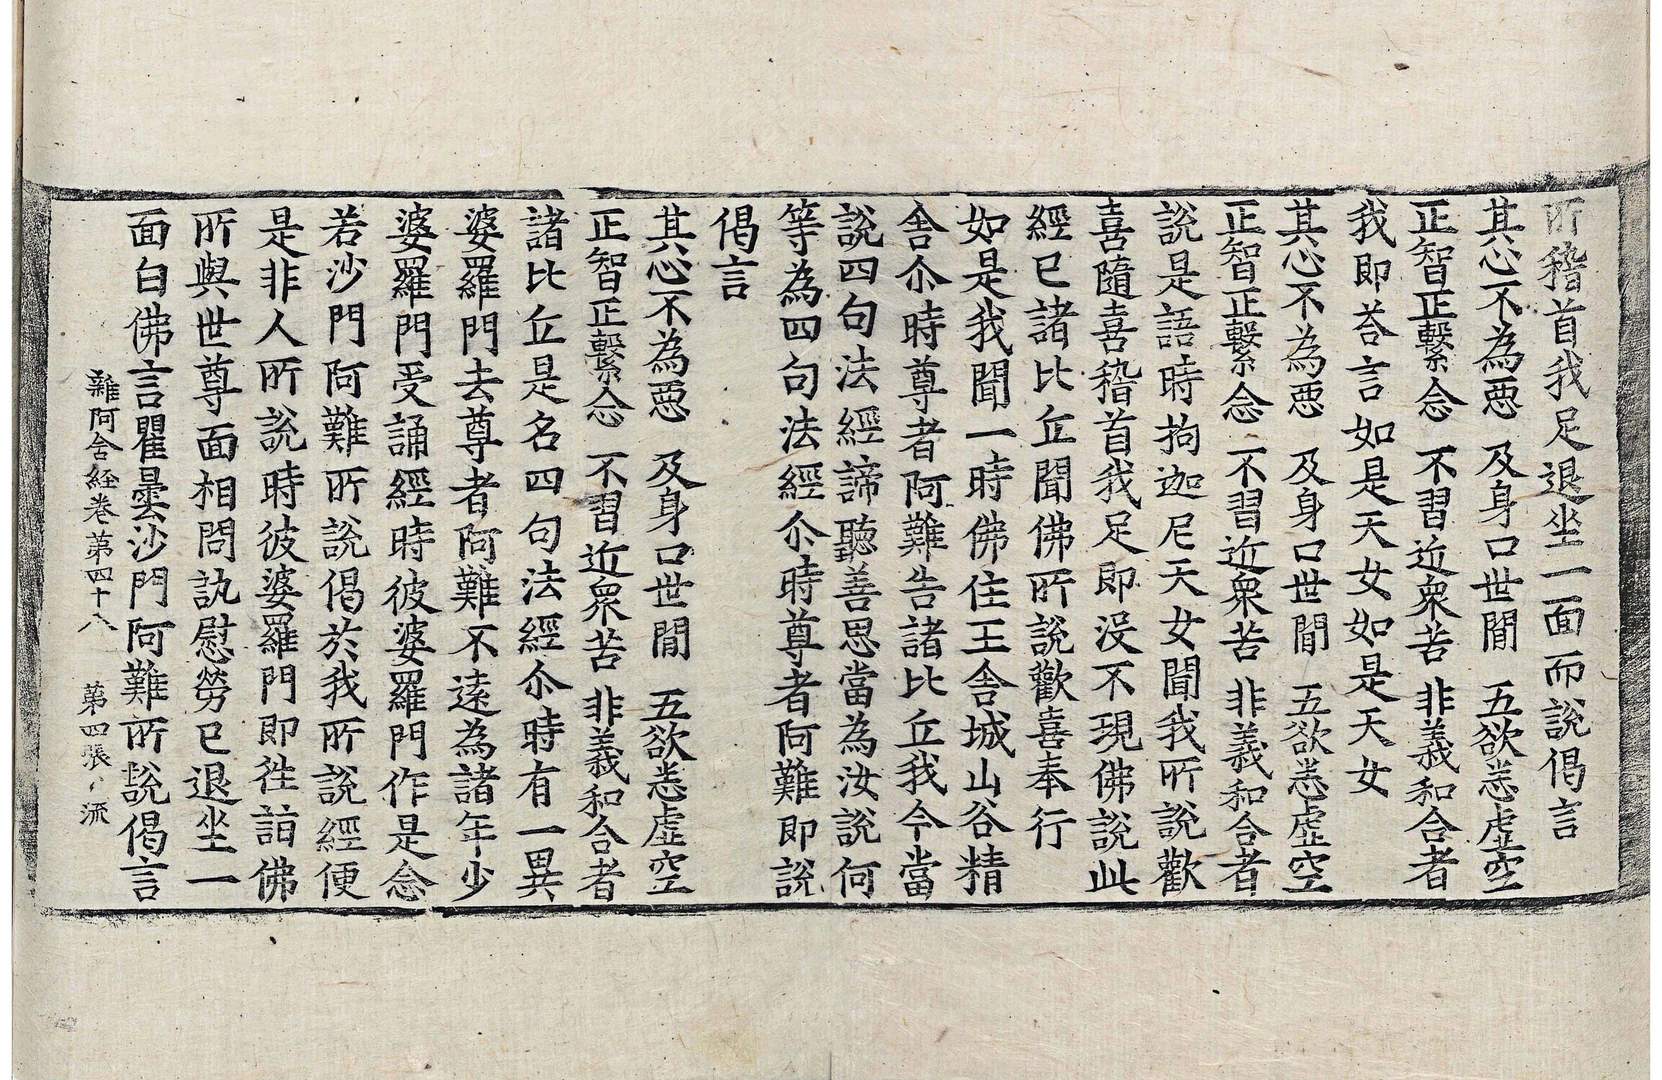 所稽首我足退坐一面而說偈言
其心不為惡 及身口世閒 五欲悉虛空
正智正繫念 不習近衆苦 非義和合者
我即荅言如是天女如是天女
其心不為惡 及身口世閒 五欲悉虛空
正智正繫念 不習近衆苦 非義和合者
說是語時拘迦尼天女聞我所說歡
喜隨喜稽首我足即没不現佛說此
經已諸比丘聞佛所說歡喜奉行
如是我聞一時佛住王舍城山谷精
舍尒時尊者阿難告諸比丘我今當
說四句法經諦聽善思當為汝說何
等為四句法經尒時尊者阿難即說
偈言
其心不為惡 及身口世閒 五欲悉虛空
正智正繫念 不習近衆苦 非義和合者
諸比丘是名四句法經尒時有一異
婆羅門去尊者阿難不遠為諸年少
婆羅門受誦經時彼婆羅門作是念
若沙門阿難所說偈於我所說經便
是非人所說時彼婆羅門即徃詣佛
所與世尊面相問訊慰勞已退坐一
面白佛言瞿曇沙門阿難所說偈言
雜阿含経卷苐四十八 苐四張 流